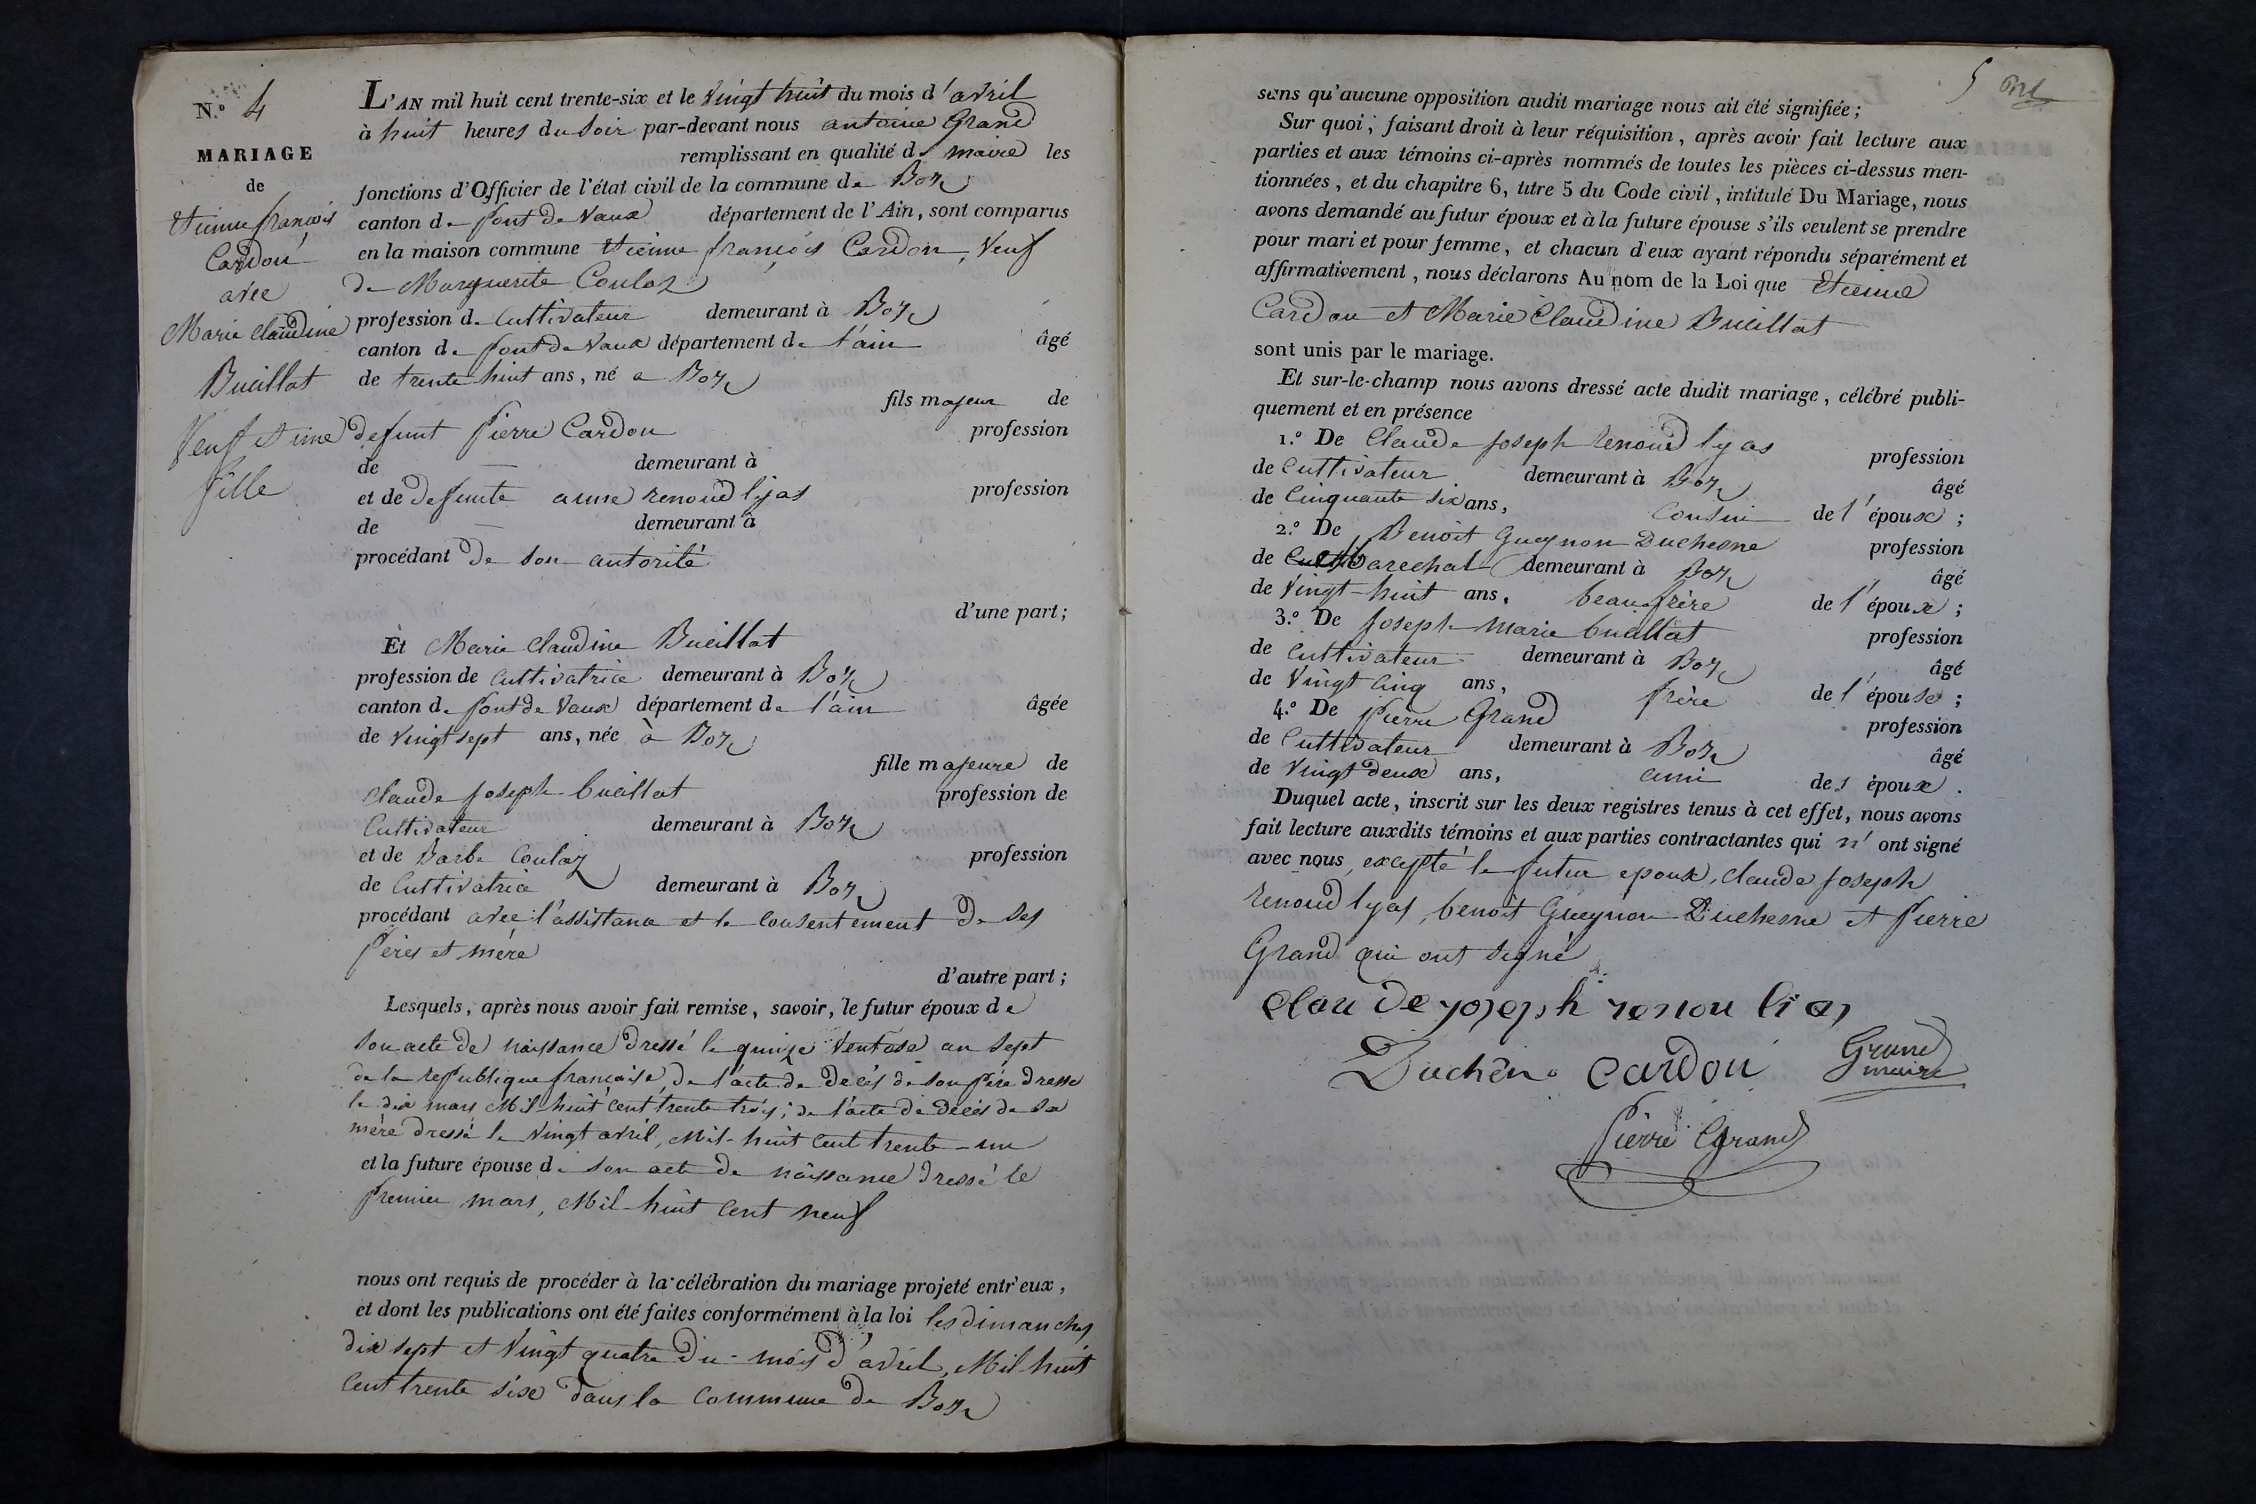 N.º 4
MARIAGE
de
Etienne françois
Cardon
avec
Marie Claudine
Bueillat
Veuf et une
fille
L'AN mil huit cent trente-six et le Vingt huit du mois d'avril
à huit heures du Soir par-devant nous antoine Grand
remplissant en qualité de maire les
fonctions d'Officier de l'état civil de la commune de Boz
canton de pont de Vaux département de l'Ain, sont comparus
en la maison commune Etienne françois Cardon, Veuf
de Marguerite Coulaz
profession de Cultivateur demeurant à Boz
canton de pont de Vaux département de l'ain âgé
de trente huit ans, né a Boz
fils majeur de
defunt Pierre Cardon profession
de — demeurant à
et de defunte anne renoud lyas profession
de — demeurant à
procédant de son autorité
d'une part;
Et Marie Claudine Bueillat
profession de Cultivatrice demeurant à Boz
canton de pont de Vaux département de l'ain âgée
de Vingt sept ans, née à Boz
fille majeure de
Claude Joseph bueillat profession de
Cultivateur demeurant à Boz
et de Barbe Coulaz profession
de Cultivatrice demeurant à Boz
procédant avec l'assistance et le consentement de ses
pères et mère
d'autre part;
Lesquels, après nous avoir fait remise, savoir, le futur époux de
son acte de naissance dressé le quinze Ventose an sept
de la republique française, de l'acte de décés de son père dressé
le dix mars Mil-huit cent trente trois; de l'acte de décés de sa
mère dressé le Vingt avril, Mil-huit cent trente-un
et la future épouse de son acte de naissance dressé le
premier mars, Mil-huit cent neuf
nous ont requis de procéder à la célébration du mariage projeté entr'eux,
et dont les publications ont été faites conformément à la loi les dimanches
dix sept et Vingt quatre du mois d'avril, Mil-huit
cent trente six dans la commune de Boz
5
sans qu'aucune opposition audit mariage nous ait été signifiée;
Sur quoi, faisant droit à leur réquisition, après avoir fait lecture aux
parties et aux témoins ci-après nommés de toutes les pièces ci-dessus men-
tionnées, et du chapitre 6, titre 5 du Code civil, intitulé Du Mariage, nous
avons demandé au futur époux et à la future épouse s'ils veulent se prendre
pour mari et pour femme, et chacun d'eux ayant répondu séparément et
affirmativement, nous déclarons Au nom de la Loi que Etienne
Cardon et Marie Claudine Bueillat
sont unis par le mariage.
Et sur-le-champ nous avons dressé acte dudit mariage, célébré publi-
quement et en présence
1.º De Claude Joseph renoud lyas profession
de Cultivateur demeurant à Boz âgé
de Cinquante six ans, Cousin de l'époux;
2.º De Benoit Gueynon Duchesne profession
de Marechal demeurant à Boz âgé
de Vingt-huit ans, beau frère de l'époux;
3.º De Joseph Marie bueillat profession
de Cultivateur demeurant à Boz âgé
de Vingt cinq ans, frère de l'épouse;
4.º De Pierre Grand profession
de Cultivateur demeurant à Boz âgé
de Vingt deux ans, ami des époux.
Duquel acte, inscrit sur les deux registres tenus à cet effet, nous avons
fait lecture auxdits témoins et aux parties contractantes qui n'ont signé
avec nous, excepté le futur epoux, Claude Joseph
renoud lyas, benoit Gueynon Duchesne et Pierre
Grand qui ont signé
Clau de yoseph renou lias
Duchêne Cardon Grand
maire
Pierre Grand